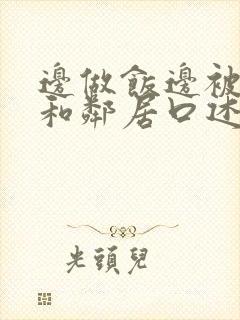 邊做飯邊被
和鄰居口述
光頭兒